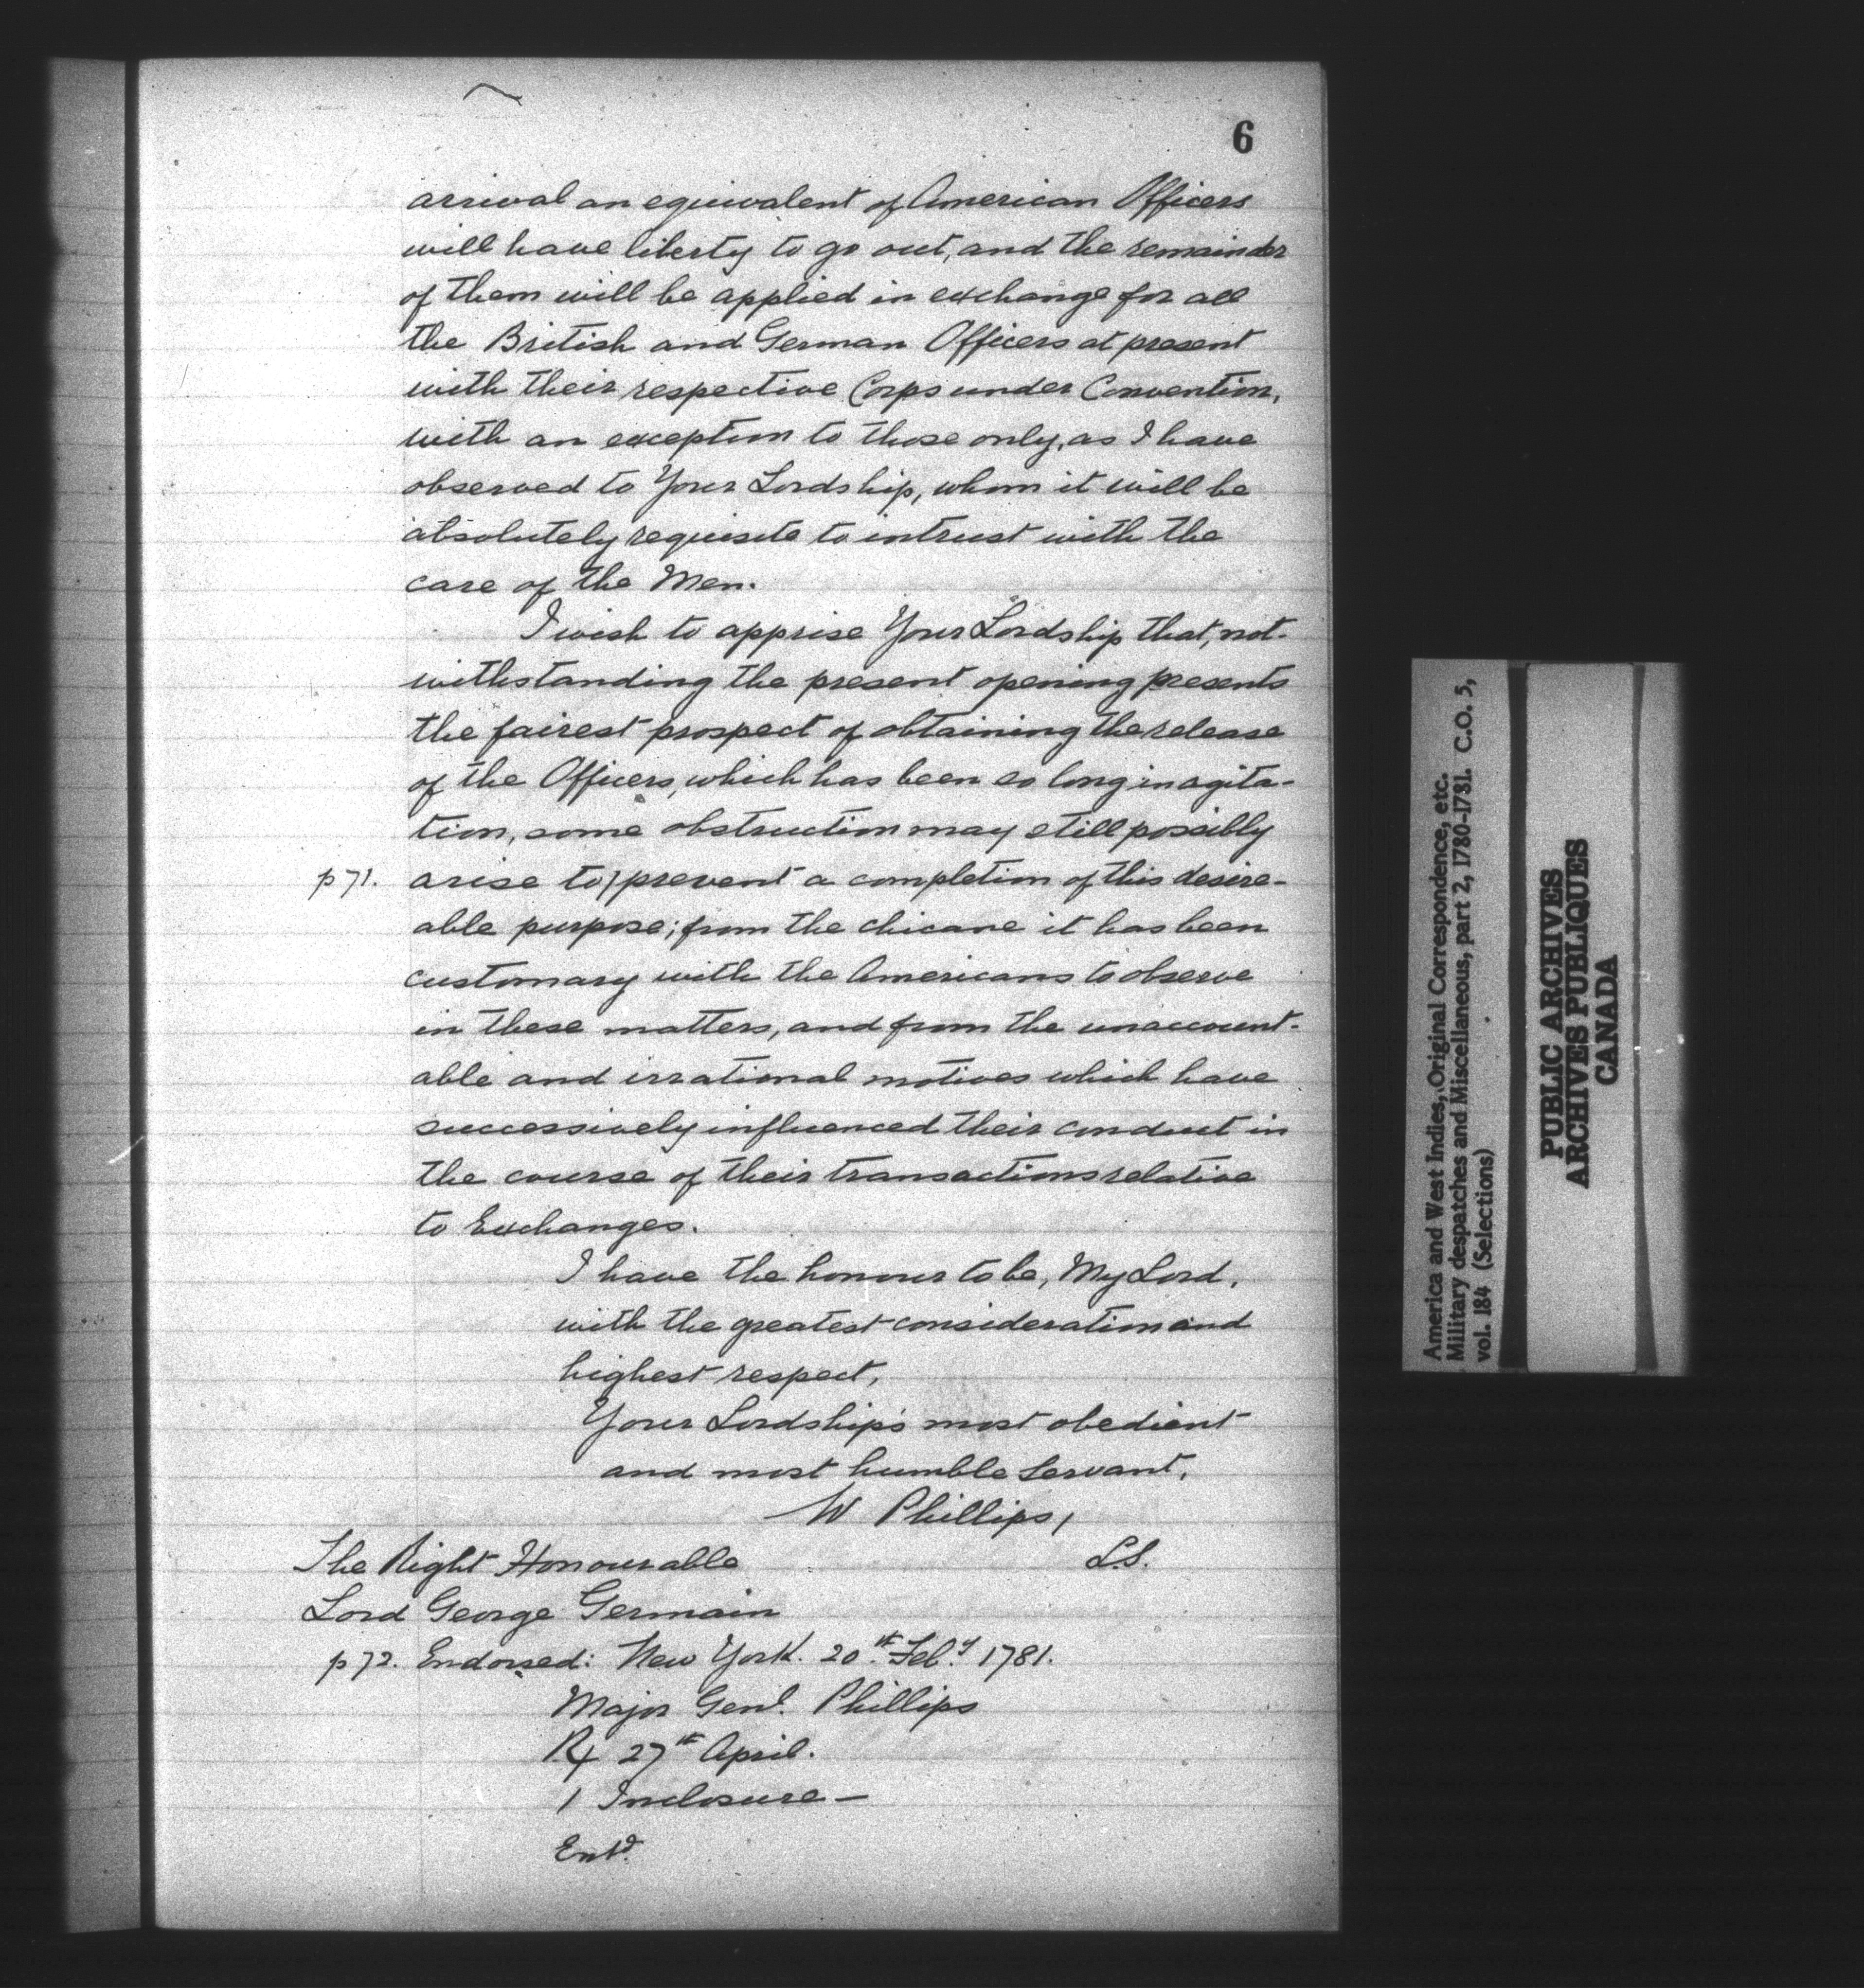 6
arrival an equivalent of American Officers
will have liberty to go out, and the remainder
of them will be applied in exchange for all
the British and German Officers at present
with their respective Corps under Convention,
with an exception to those only, as I have
observed to Your Lordship, whom it will be
absolutely requisite to intrust with the
care of the Men.
I wish to apprise Your Lordship that, not-
withstanding the present opening presents
the fairest prospect of obtaining the release
of the Officers, which has been so long in agita-
tion, some obstruction may still possibly
p 71. arise to/prevent a completion of this desire-
able purpose; from the chicane it has been
customary with the Americans to observe
in these matters, and from the unaccount-
able and irrational motives which have
successively influenced their conduct in
the course of their transactions relative
to Exchanges.
I have the honour to be, My Lord,
with the greatest consideration and
highest respect,
Your Lordship's most obedient
and most humble Servant,
W Phillips,
The Right Honourable L.S.
Lord George Germain
p 72. Endorsed: New York. 20th Feby 1781.
Major Genl. Phillips
R/ 27th April.
1 Inclosure —
Entd.
America and West Indies, Original Correspondence, etc.
Military despatches and Miscellaneous, part 2, 1780-1781. C.O. 5,
vol. 184 (Selections)
PUBLIC ARCHIVES
ARCHIVES PUBLIQUES
CANADA